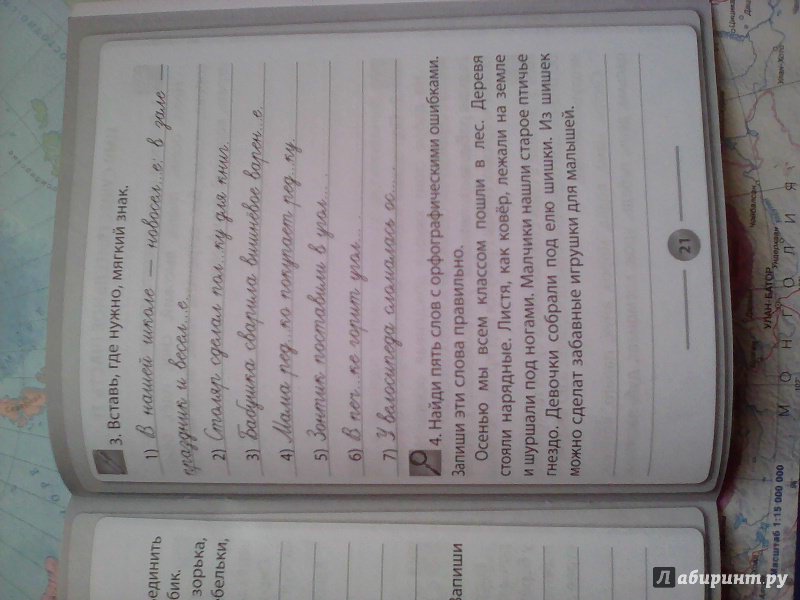 3. Вставь, где нужно, мягкий знак.
1) В нашей школе — новосел...е: в зале —
праздник и весел...е.
2) Столяр сделал пол...ку для книг.
3) Бабушка сварила вишнёвое варен...е.
4) Мама ред...ко покупает ред...ку.
5) Зонтик поставили в угол... .
6) В печ...ке горит угол... .
7) У велосипеда сломалась ос... .
4. Найди пять слов с орфографическими ошибками.
Запиши эти слова правильно.
Осенью мы всем классом пошли в лес. Деревя
стояли нарядные. Листя, как ковёр, лежали на земле
и шуршали под ногами. Малчики нашли старое птичье
гнездо. Девочки собрали под елю шишки. Из шишек
можно сделат забавные игрушки для малышей.
21
единить
бик.
зорька,
бельки,
Запиши
УЛАН-БАТОР
МОНГОЛИЯ
Масштаб 1:15 000 000
Лабиринт.ру